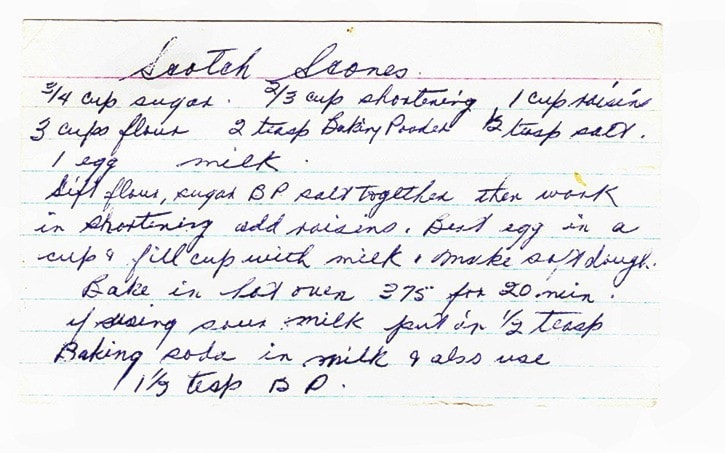 Scotch Scones.
3/4 cup sugar. 2/3 cup shortening 1 cup raisins
3 cups flour 2 teasp Baking Powder 1/2 teasp salt.
1 egg milk.
Sift flour, sugar BP salt together then work
in shortening add raisins. Beat egg in a
cup & fill cup with milk & make soft dough.
Bake in hot oven 375 for 20 min.
if using sour milk put in 1/2 teasp
Baking soda in milk & also use
1 1/2 teasp B P.